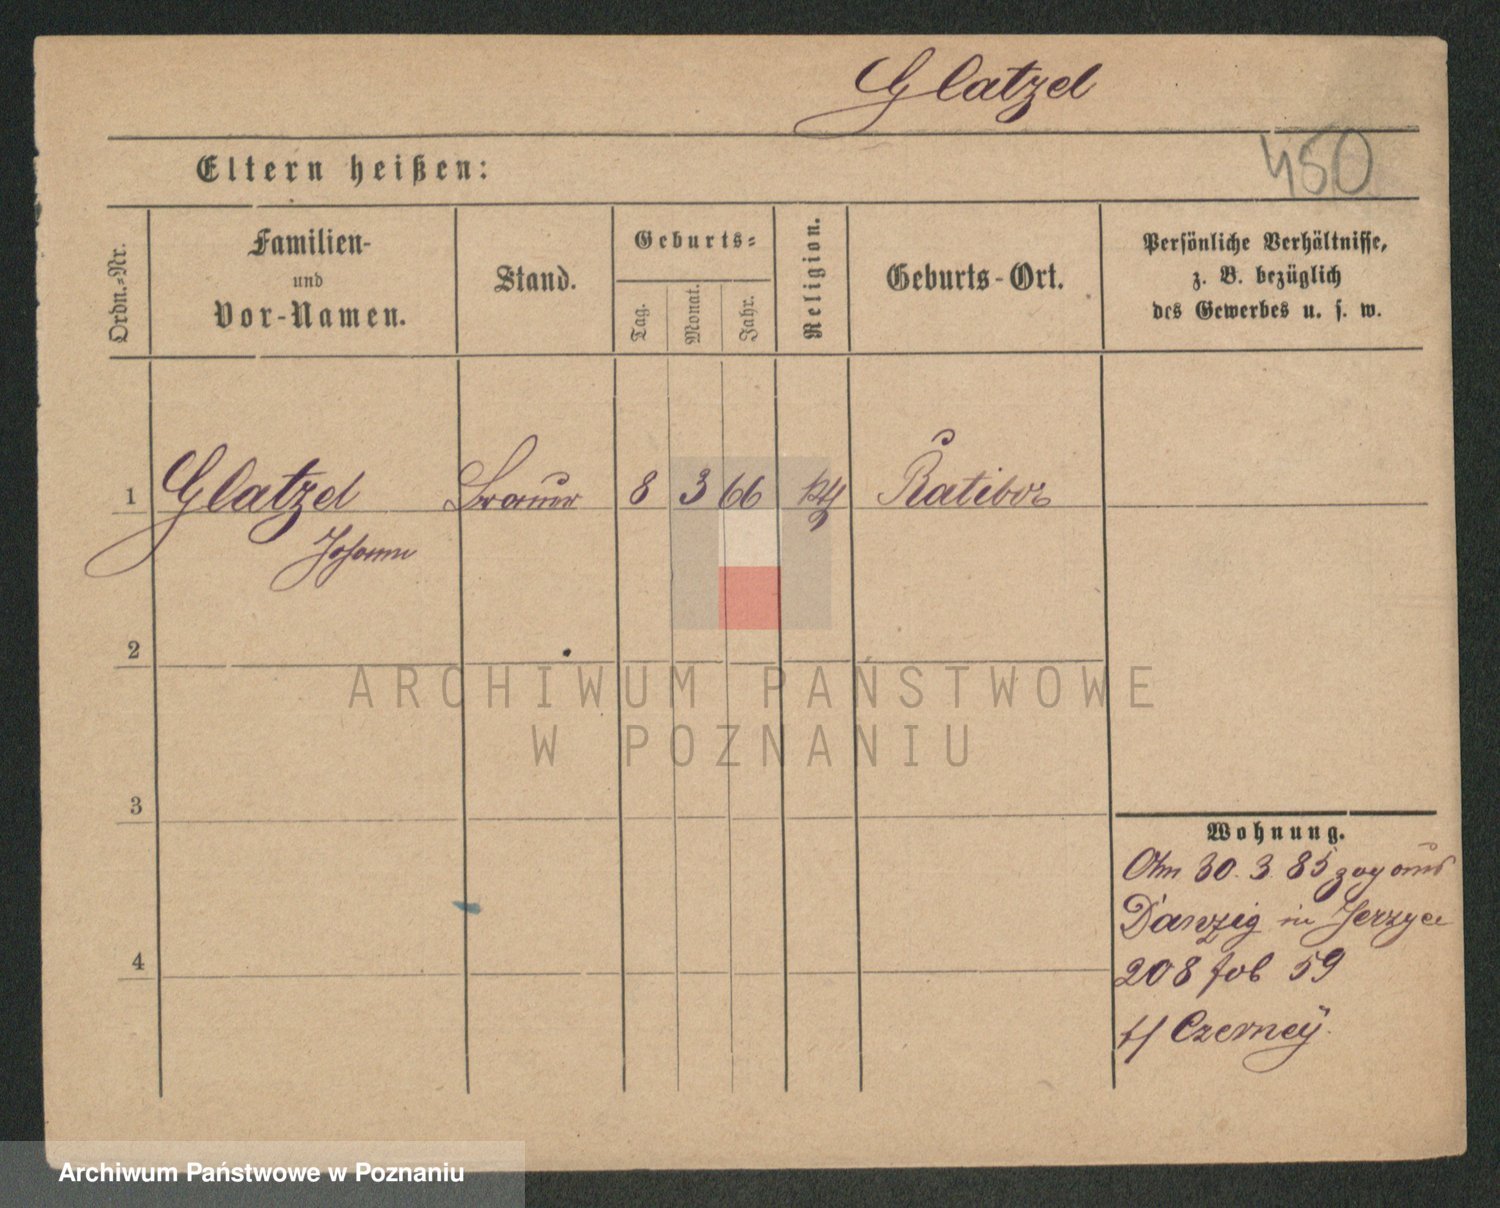 Glatzel
Eltern heißen:
450
Ordn.-Nr.
Familien-
und
Vor-Namen.
Stand.
Geburts-
Tag.
Monat.
Jahr.
Religion.
Geburts-Ort.
Persönliche Verhältnisse,
z. B. bezüglich
des Gewerbes u. s. w.
1 Glatzel Brauer 8 3 66 Ratibor
Johann
2
3
4
Wohnung.
Am 30. 3. 85 zog aus
Danzig in Jerzyce
208 59
Czerney
ARCHIWUM PAŃSTWOWE
W POZNANIU
Archiwum Państwowe w Poznaniu